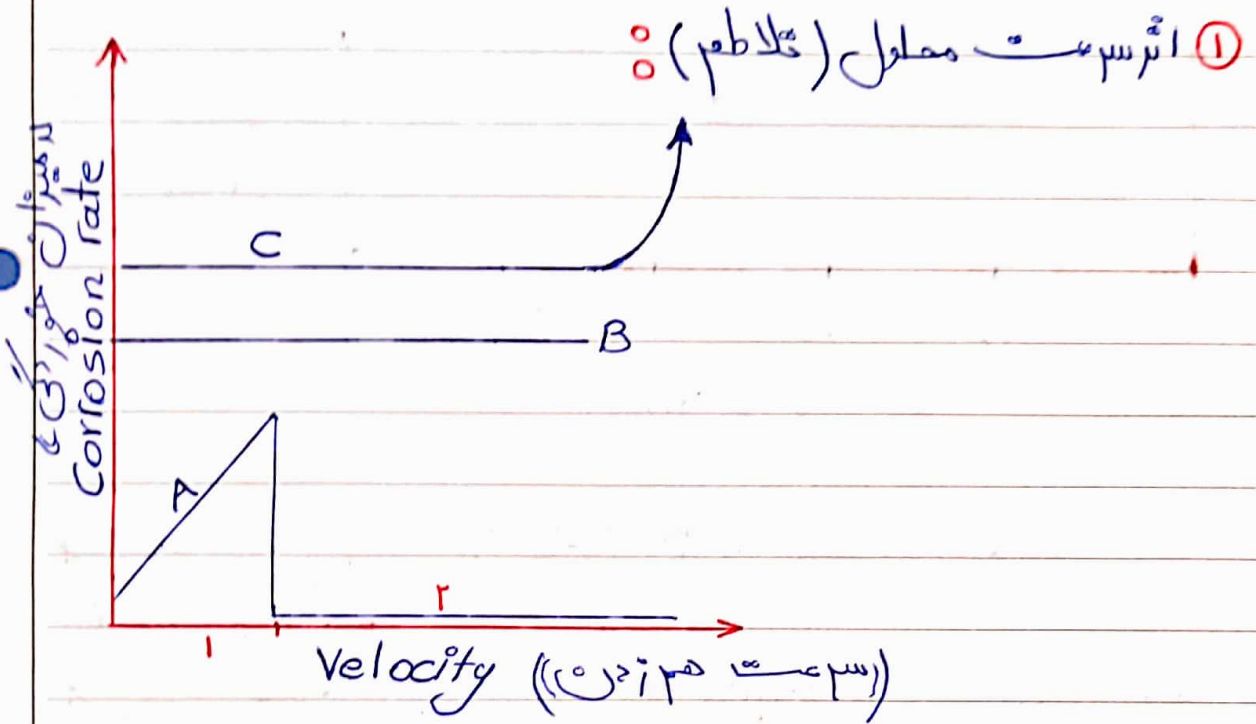 ① اثر سرعت محلول (تلاطم) :
میزان خوردگی
Corrosion rate
C
B
A
۱
۲
Velocity ((سرعت هم زدن))